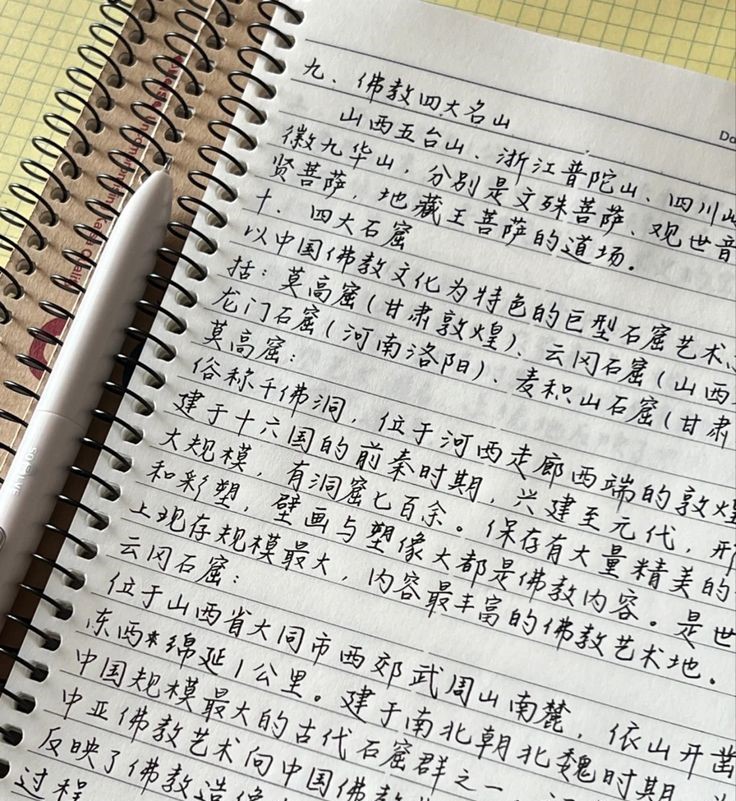 九、佛教四大名山
山西五台山、浙江普陀山、四川
徽九华山，分别是文殊菩萨、观世音
贤菩萨，地藏王菩萨的道场。
十、四大石窟
以中国佛教文化为特色的巨型石窟艺术
括：莫高窟（甘肃敦煌）、云冈石窟（山西
龙门石窟（河南洛阳）、麦积山石窟（甘肃
莫高窟：
俗称千佛洞，位于河西走廊西端的敦煌
建于十六国的前秦时期，兴建至元代，形
大规模，有洞窟七百余。保存有大量精美的
和彩塑，壁画与塑像大都是佛教内容。是世
上现存规模最大，内容最丰富的佛教艺术地。
云冈石窟：
位于山西省大同市西郊武周山南麓，依山开凿
东西绵延1公里。建于南北朝北魏时期
中国规模最大的古代石窟群之一
中亚佛教艺术向中国佛教
反映了佛教造像
过程